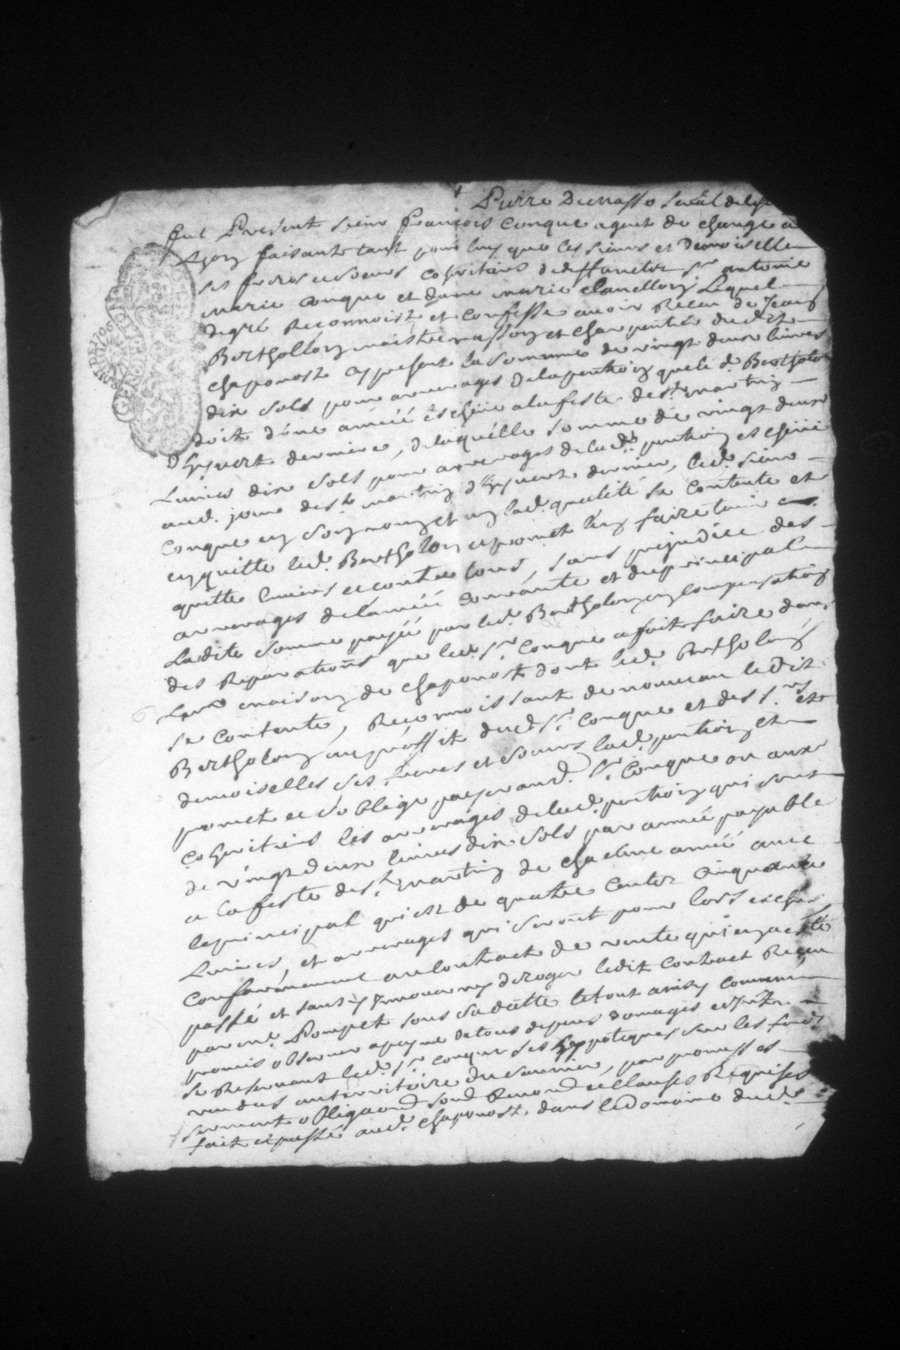 Pierre
fut Present sieur françois Conque agent de change a
Lyon faisant tant pour luy que les sieurs et Demoiselles
ses freres et soeurs cohéritiers de deffuncts Sr antoine
marie Conque et dame marie Lequel
degré Reconnoist et confesse avoir Receu de Jean
Berthollon maistre masson et charpentier dud.
chaponost apresent la somme de vingt deux livres
dix sols pour arrerages de la pention que led. Berthollon
doit d'une année escheue a la feste de St martin
d'hyvert derniere, de laquelle somme de vingt deux
Livres dix sols pour arrerages de lad. pention escheue
aud. jour de St martin d'hyvert dernier, led. sieur
Conque en son nom et en lad. qualité se contente et
en quitte led. Bertholon et promet l'en faire tenir
quitte envers et contre tous, sans prejudice des
arrerages de l'année courante et du principal
Ladite somme payée par led. Bertholon en compensation
des Reparations que led. Sr Conque a fait faire dans
maison de chaponost dont led. Bertholon
se contente, Reconnoissant de nouveau ledit
Bertholon au proffit dud. Sr Conque et des Srs et
demoiselles ses freres et soeurs lad. pention et
promet et s'oblige payer aud. Sr Conque ou aux
cohéritiers les arrerages de lad. pention qui sont
de vingt deux livres dix sols par année payable
a la feste de St martin de chacune année avec
le principal qui est de quatre cents cinquante
Livres, et arrerages qui seront pour lors escheus
conformement au contract de rente
passé et sans y innover ny deroger ledit contract Receu
par me. sous sa datte le tout ainsy convenu
promis observer a peyne de tous depens domages
se Reservant led. Sr Conque ses hypoteques sur les fonds
vendus au territoire par promesses
serment obligaons clauses Requises
fait et passé aud. chaponost dans le domaine dud. Sr